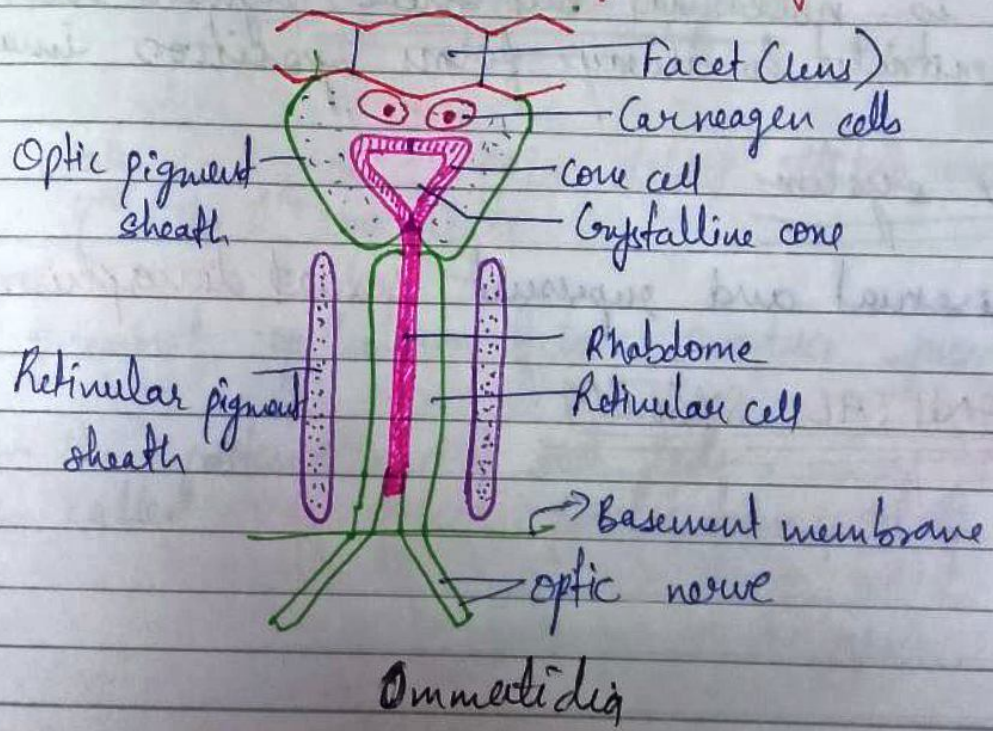 Facet (lens)
Carneagen cells
Optic pigment
sheath
cone cell
Crystalline cone
Rhabdome
Retinular pigment
sheath
Retinular cell
Basement membrane
optic nerve
Ommatidia